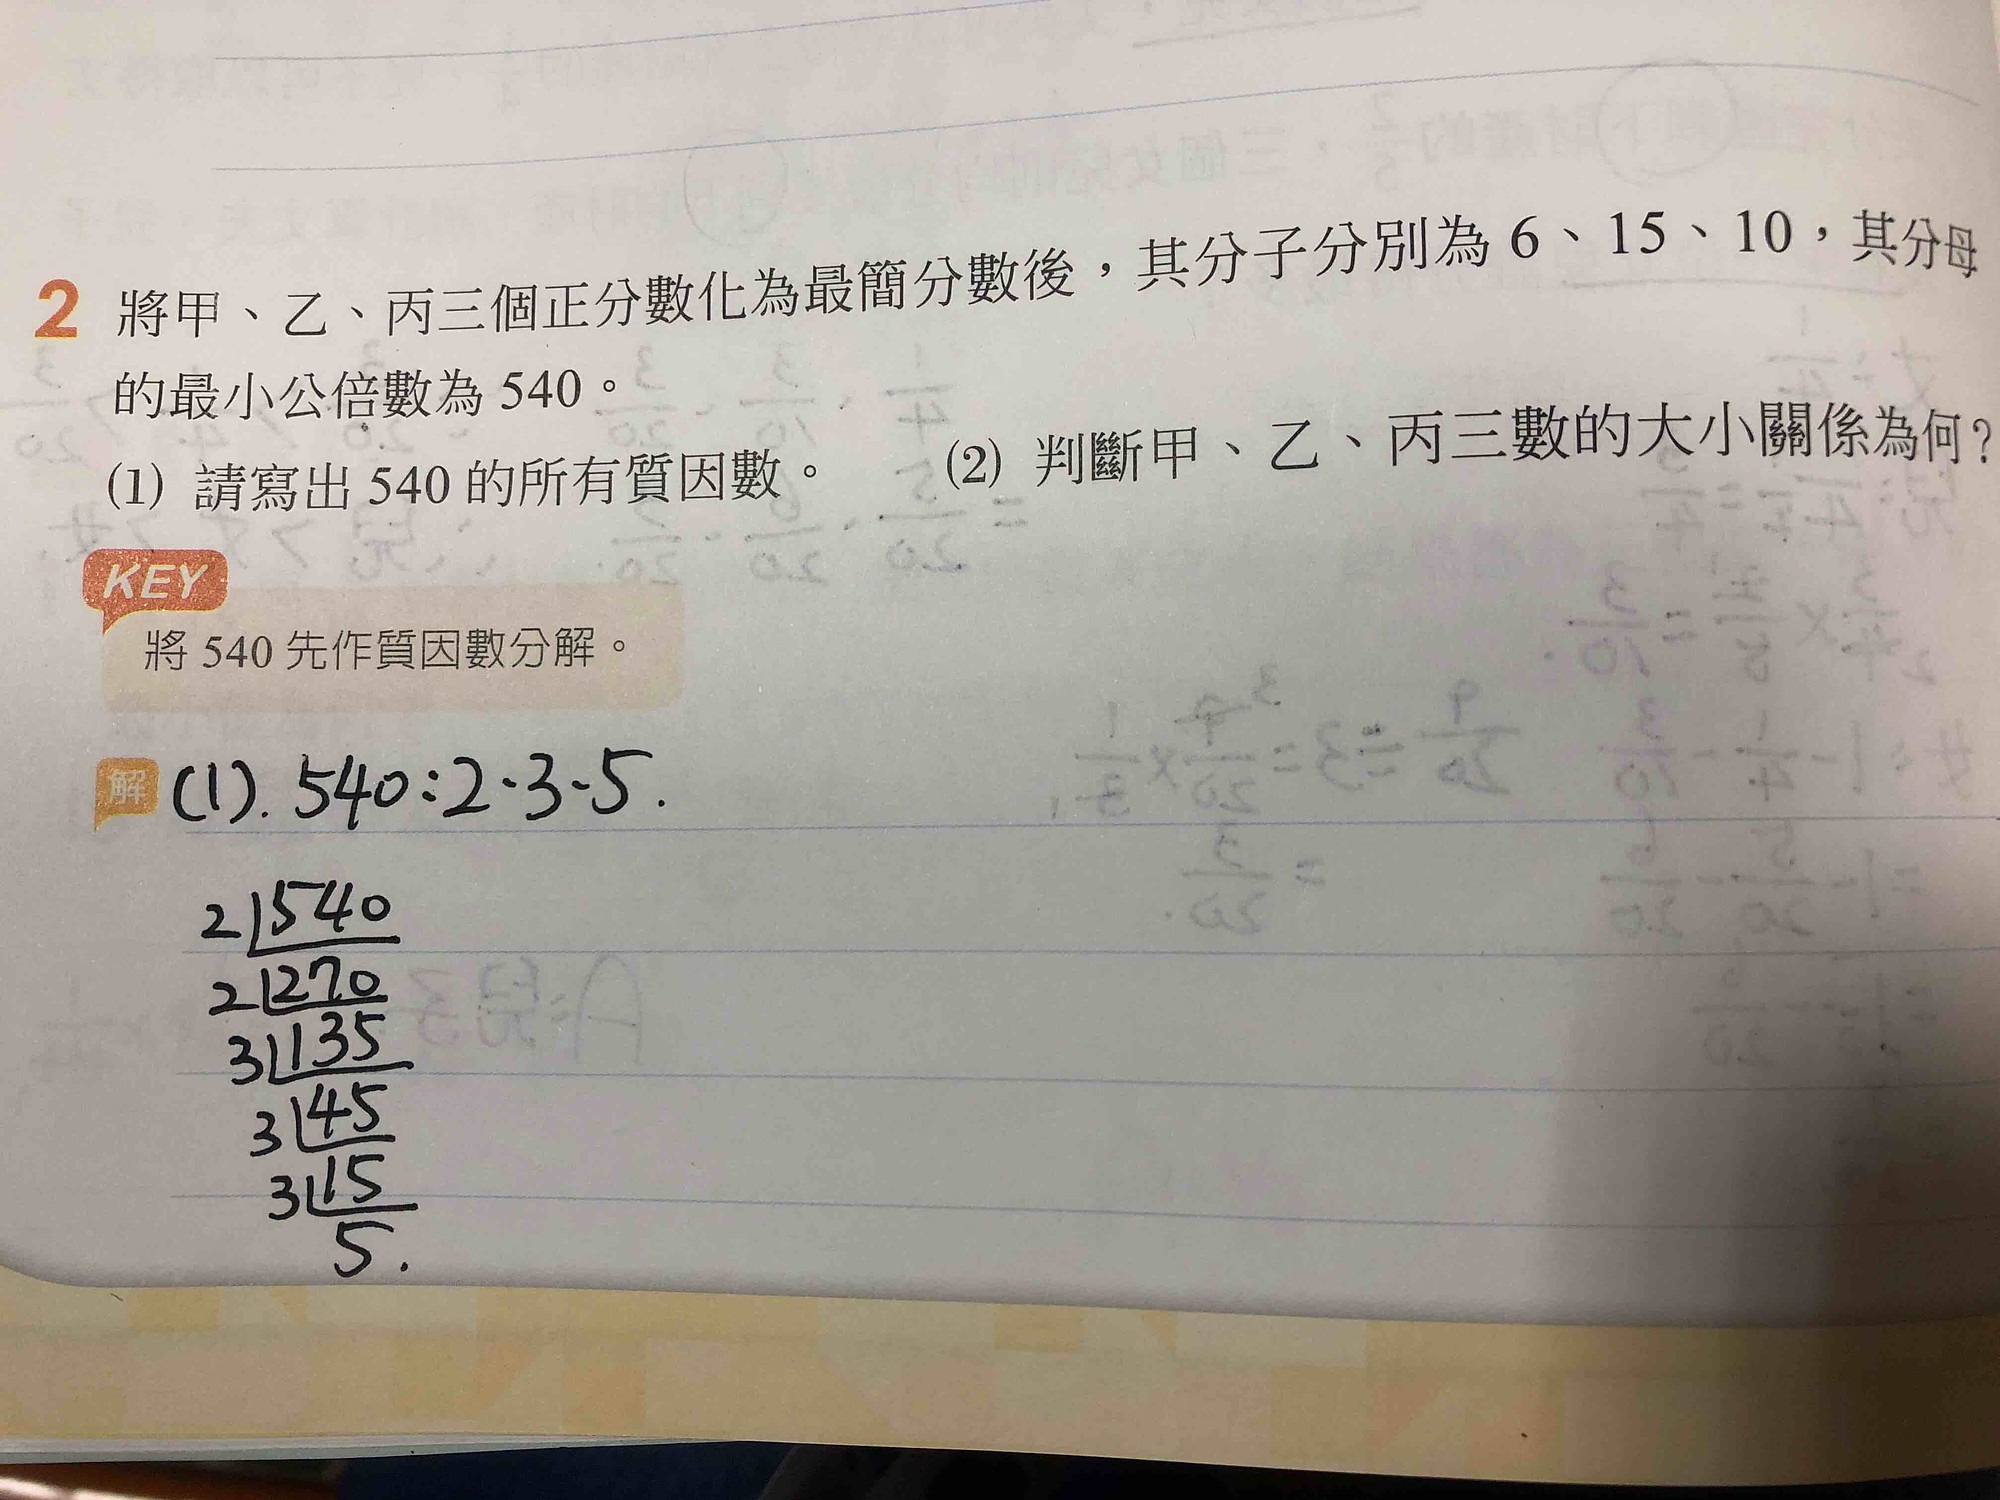 2 將甲、乙、丙三個正分數化為最簡分數後，其分子分別為 6、15、10，其分母
的最小公倍數為 540。
(1) 請寫出 540 的所有質因數。 (2) 判斷甲、乙、丙三數的大小關係為何？
KEY
將 540 先作質因數分解。
解 (1). 540:2.3.5.
2 540
2 270
3 135
3 45
3 15
5.